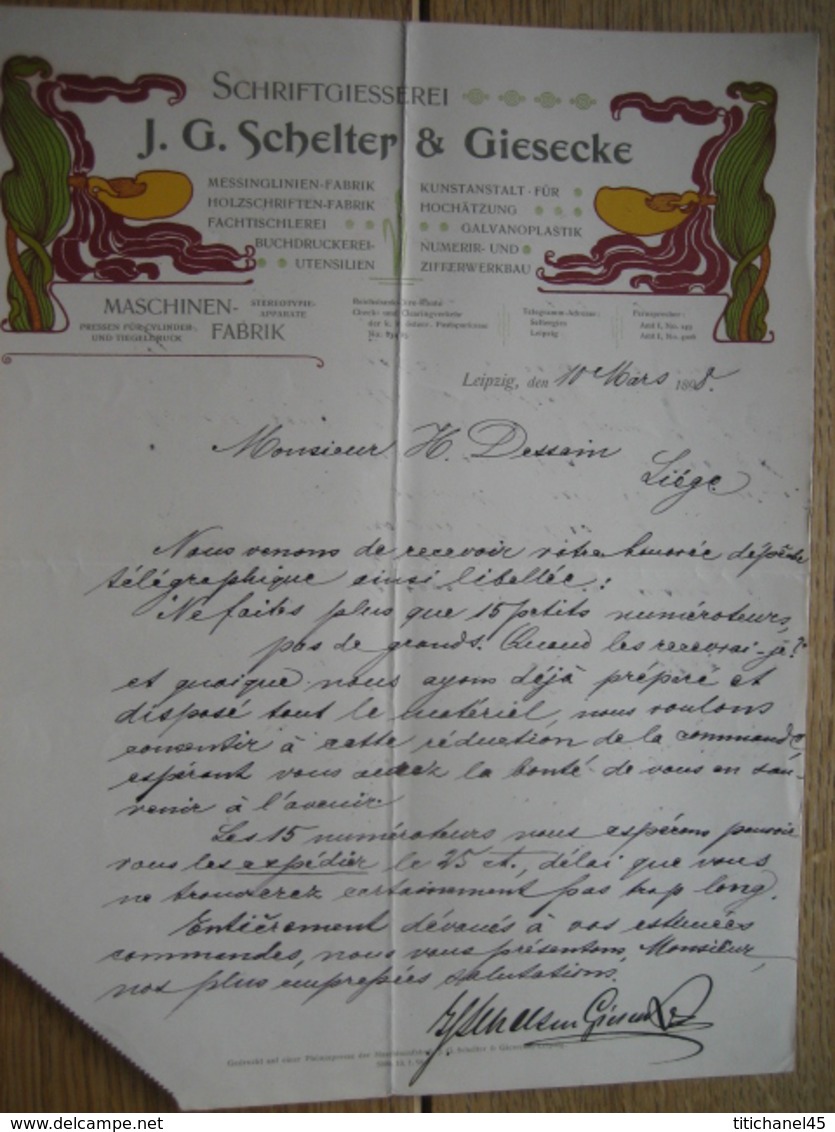 SCHRIFTGIESSEREI
J. G. Schelter & Giesecke
MESSINGLINIEN-FABRIK
HOLZSCHRIFTEN-FABRIK
FACHTISCHLEREI
BUCHDRUCKEREI-
UTENSILIEN
KUNSTANSTALT-FÜR
HOCHÄTZUNG
GALVANOPLASTIK
NUMERIR- UND
ZIFFERWERKBAU
MASCHINEN-
FABRIK
PRESSEN FÜR CYLINDER-
UND TIEGELDRUCK
STEREOTYPIE-
APPARATE
Check- und Clearingverkehr
Telegramm-Adresse:
Leipzig
Fernsprecher:
Leipzig, den 10 Mars 1898.
Monsieur H. Dessain
Liége
Nous venons de recevoir votre honorée dépêche
télégraphique ainsi libellée:
Ne faites plus que 15 petits numéroteurs,
pas de grands. Quand les recevrai-je?
et quoique nous ayons déjà préparé et
disposé tout le matériel, nous voulons
consentir à cette réduction de la commande,
espérant vous aurez la bonté de vous en sou-
venir à l'avenir.
Les 15 numéroteurs nous espérons pouvoir
vous les expédier le 25 ct., délai que vous
ne trouverez certainement pas trop long.
Entièrement dévoués à vos estimées
commandes, nous vous présentons, Monsieur,
nos plus empressées salutations.
titichanel45